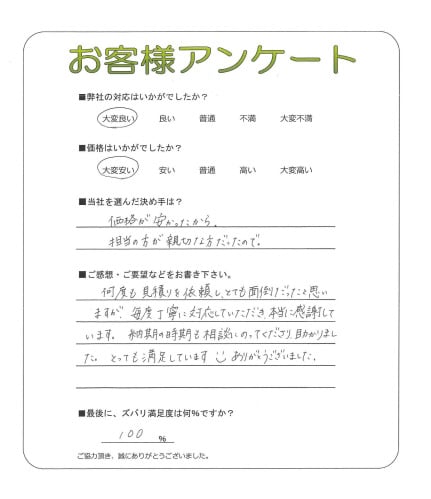 お客様アンケート
■弊社の対応はいかがでしたか？
大変良い 良い 普通 不満 大変不満
■価格はいかがでしたか？
大変安い 安い 普通 高い 大変高い
■当社を選んだ決め手は？
価格が安かったから。
担当の方が親切な方だったので。
■ご感想・ご要望などをお書き下さい。
何度も見積りを依頼し、とても面倒だったと思い
ますが毎度丁寧に対応していただき本当に感謝して
います。納期の時期も相談にのってくださり、助かりまし
た。とっても満足しています ありがとうございました。
■最後に、ズバリ満足度は何%ですか？
100 %
ご協力頂き、誠にありがとうございました。